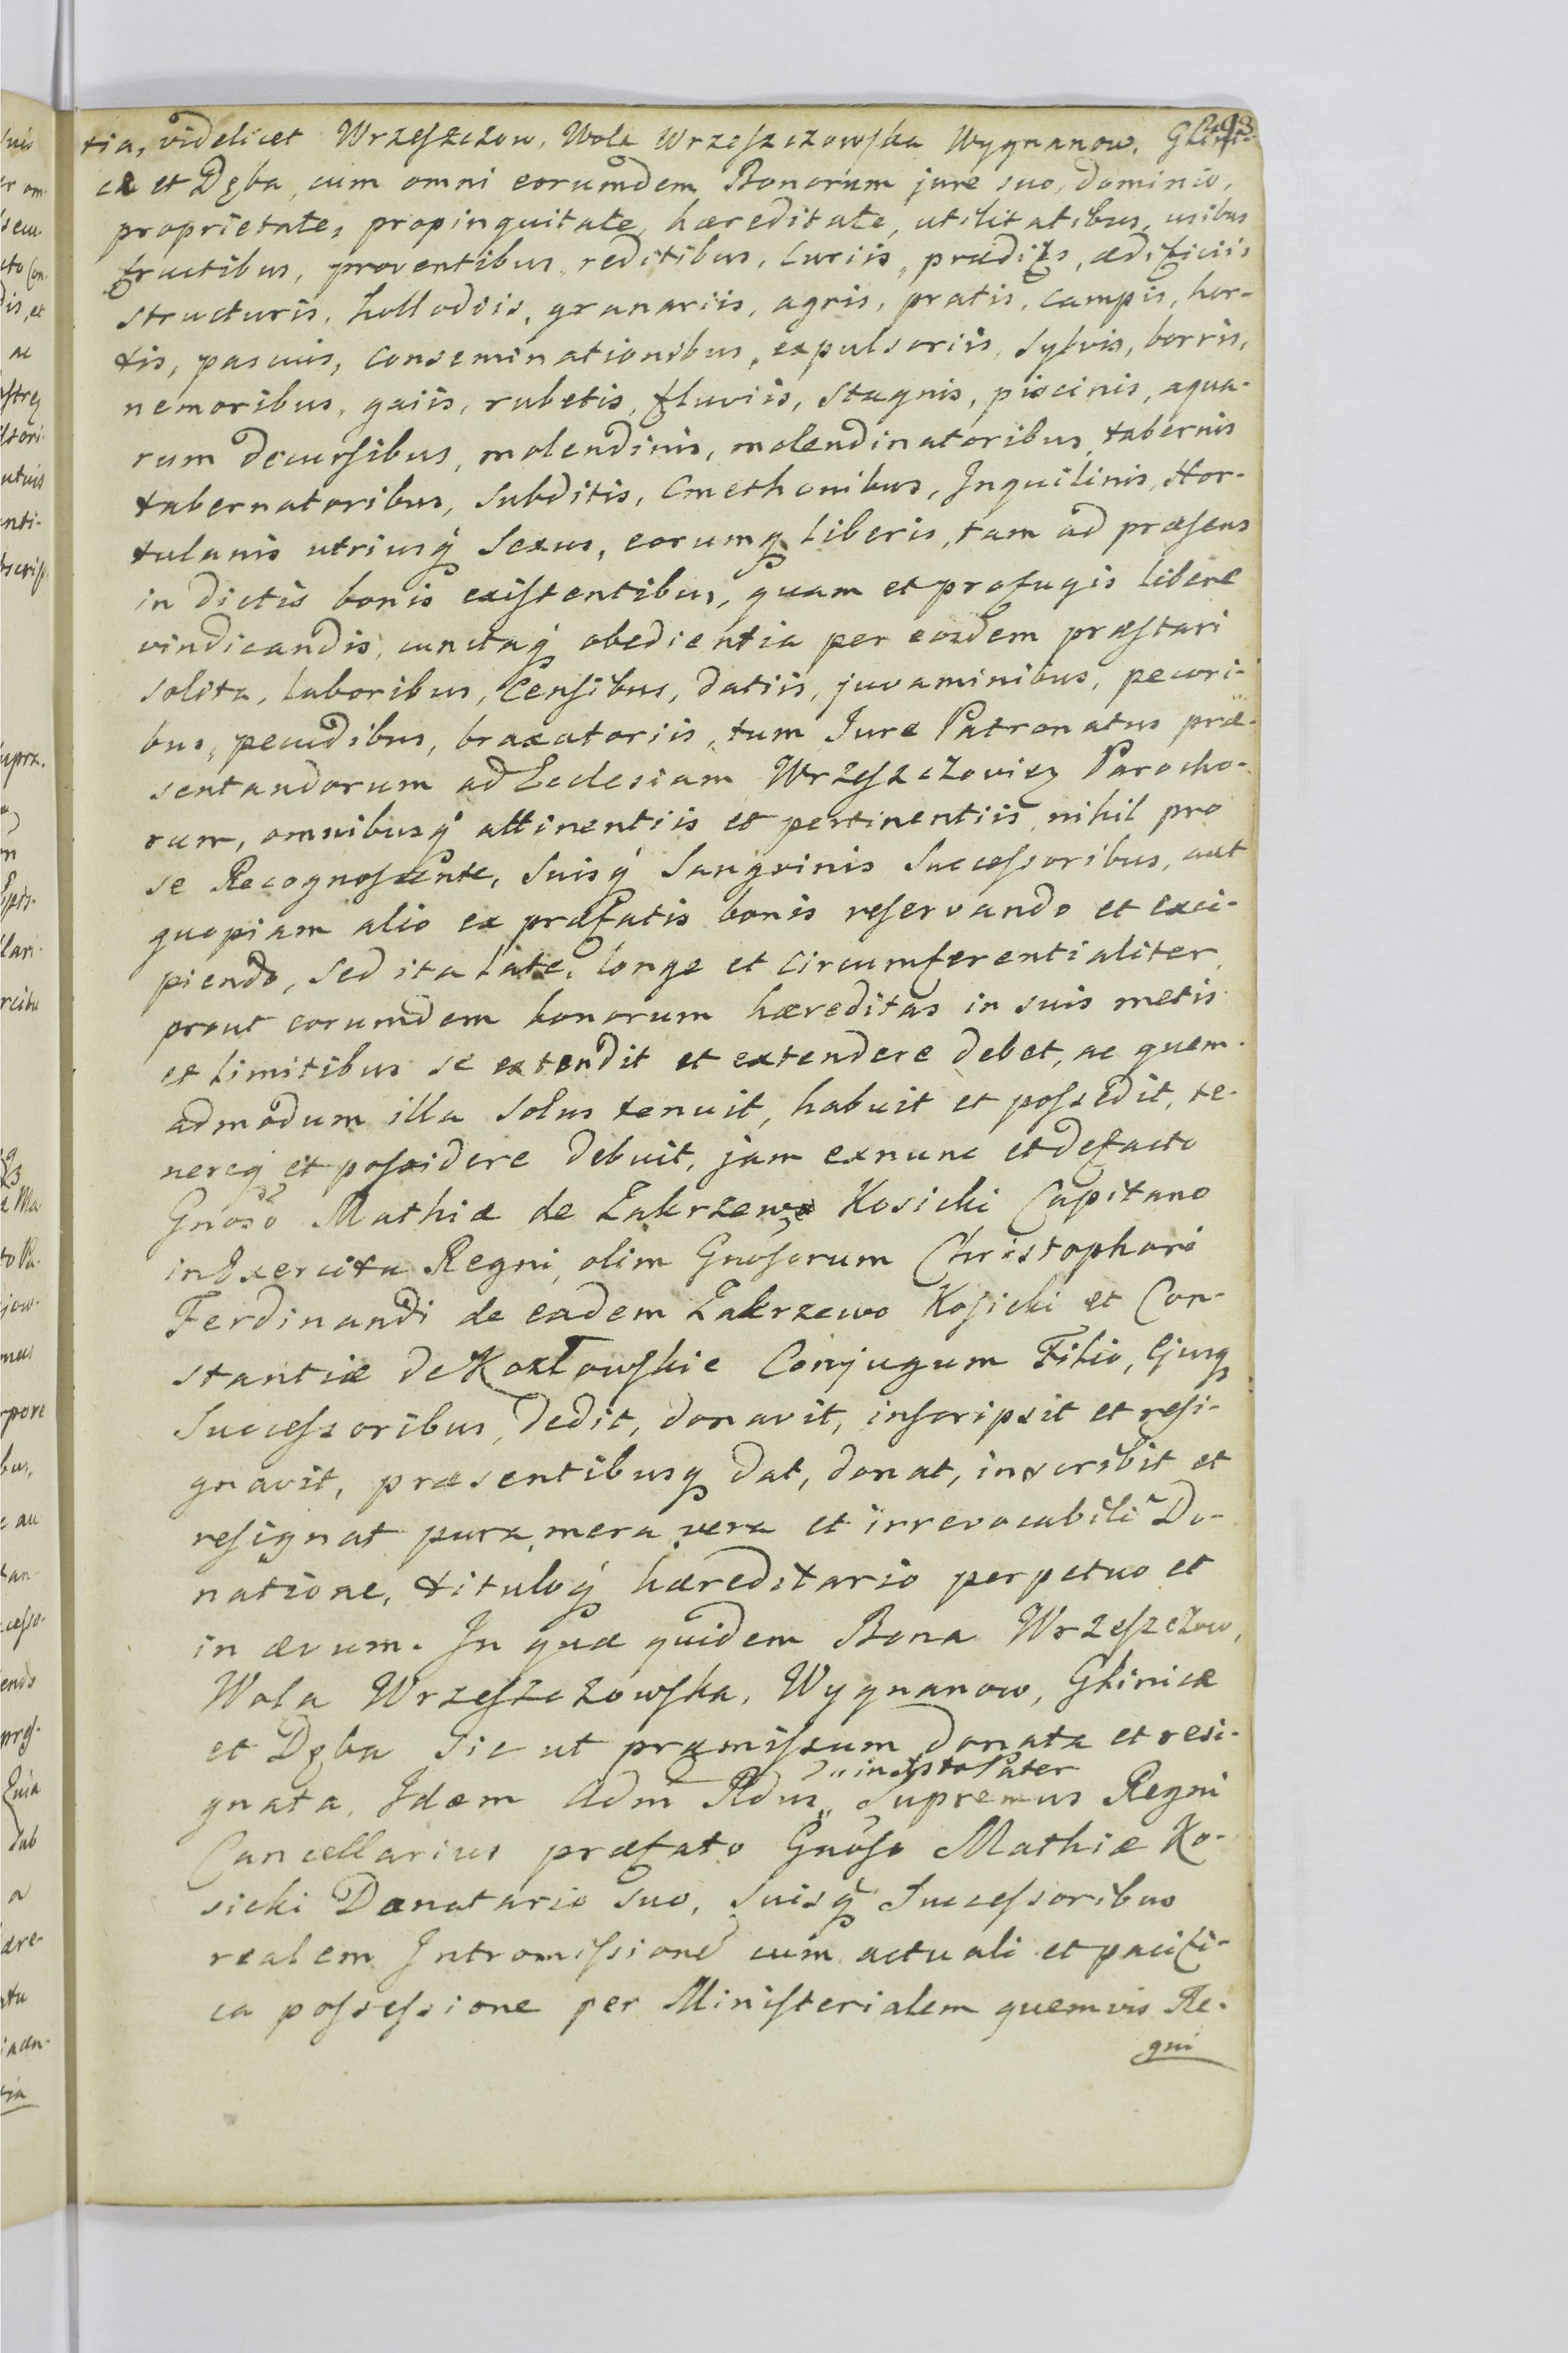 tia, videlicet Wrzeszczow, Wola Wrzeszczowska Wygnanow, Glini-
cæ et Dęba, cum omni eorumdem Bonorum jure suo, dominio,
proprietate, propinquitate, hæreditate, utilitatibus, usibus
fructibus, proventibus, reditibus, curiis, prædiis, ædificiis
structuris, hollodiis, granariis, agris, pratis, campis, hor-
tis, pascuis, conseminationibus, expulsoriis, sylvis, borris,
nemoribus, gaiis, rubetis, fluviis, stagnis, piscinis, aqua-
rum decursibus, molendinis, molendinatoribus, tabernis
tabernatoribus, subditis, Cmethonibus, Inquilinis, Hor-
tulanis utriusq́ Sexus, eorumq́ liberis, tam ad præsens
in dictis bonis existentibus, quam et profugis libere
vindicandis, cunctaq́ obedientia per eosdem præstari
solita, laboribus, Censibus, datiis, juvaminibus, pecori-
bus, pecudibus, braxatoriis, tum Jure Patronatus præ-
sentandorum ad Ecclesiam Wrzeszczovien Parocho-
rum, omnibusq́ attinentiis et pertinentiis, nihil pro
se Recognoscente, suisq́ Sangvinis Successoribus, aut
quopiam alio ex præfatis bonis reservando et exci-
piendo, sed ita late, longe et circumferentialiter,
prout eorumdem bonorum hæreditas in suis metis
et limitibus se extendit et extendere debet, ac quem-
admodum illa solus tenuit, habuit et possedit, te-
nereq́ et possidere debuit, jam exnunc et defacto
Gnoso Mathiæ de Zakrzewo Kosicki Capitano
in Exercitu Regni, olim Gnosorum Christophori
Ferdinandi de eadem Zakrzewo Kosicki et Con-
stantiæ de Kozłowskie Conjugum Filio, Ejusq́
Successoribus, dedit, donavit, inscripsit et resi-
gnavit, præsentibusq́ dat, donat, inscribit et
resignat pura, mera, vera et irrevocabili Do-
natione, tituloq́ hæreditario perpetuo et
in ævum. In quæ quidem Bona Wrzeszczow,
Wola Wrzeszczowska, Wygnanow, Glinicæ
et Dęba sic ut præmissum donata et resi-
in Xsto Pater
gnata, Idem Adm Rdus, Supremus Regni
Cancellarius præfato Gnoso Mathiæ Ko-
sicki Donatario suo, suisq́ Successoribus
realem Intromissione cum actuali et pacifi-
ca possessione per Ministerialem quemvis Re-
gni